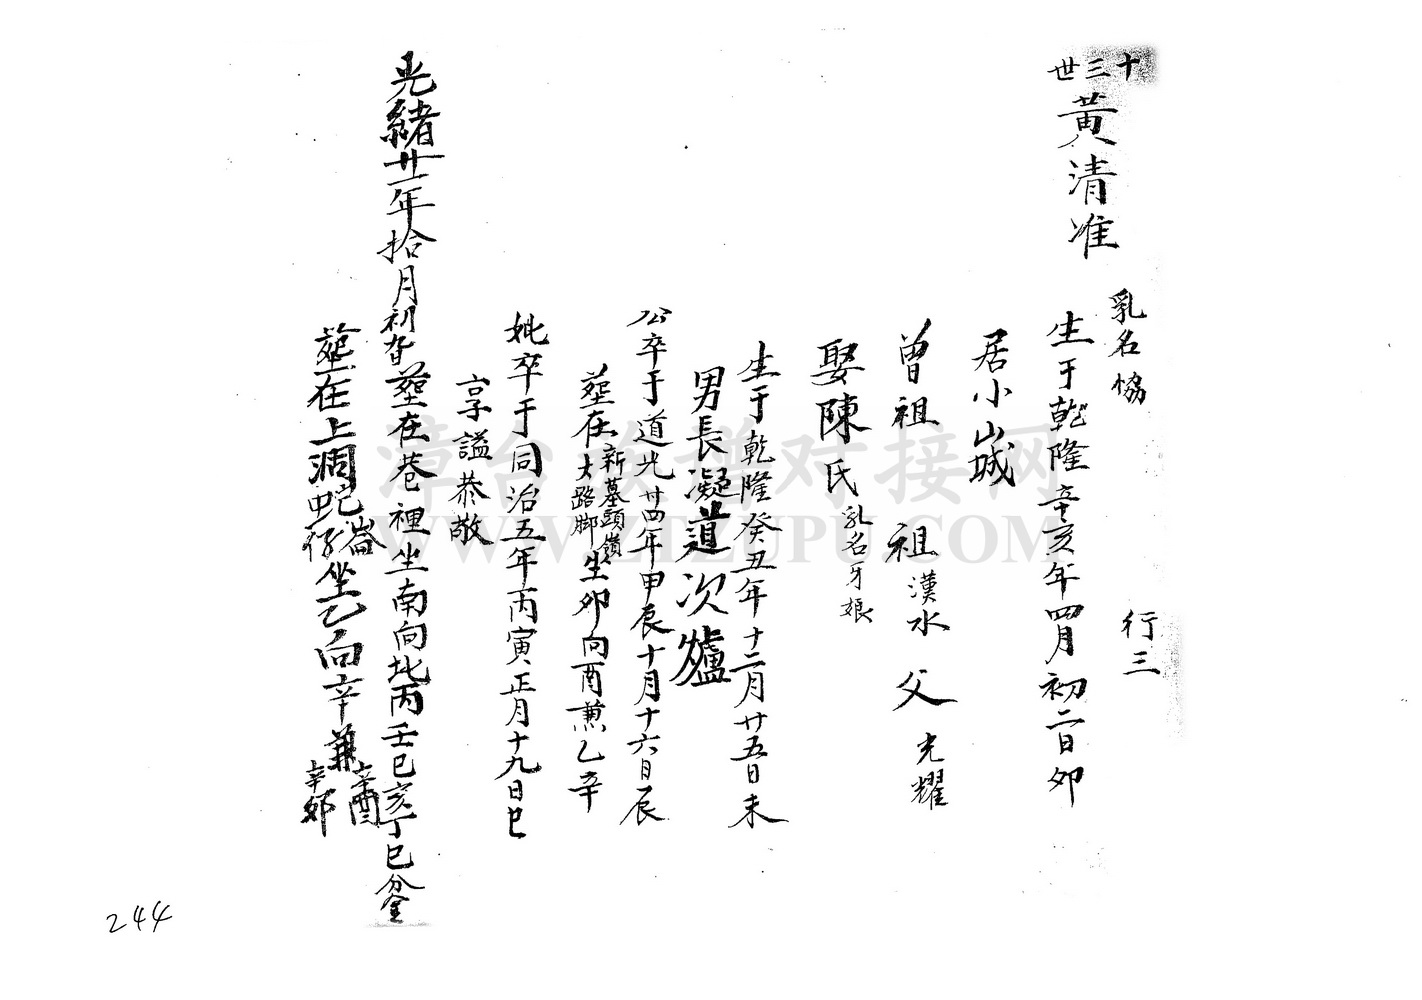 十三世
黃清准
乳名恊 行三
生于乾隆辛亥年四月初二日卯
居小山城
曾祖 祖漢水 父光耀
娶陳氏乳名牙娘
生于乾隆癸丑年十二月廿五日未
男長凝道次爐
公卒于道光廿四年甲辰十月十六日辰
塟在新墓頭嶺大路脚坐卯向酉兼乙辛
妣卒于同治五年丙寅正月十九日巳
享謚恭敬
光緒廿一年拾月初 塟在巷裡坐南向北丙壬巳亥丁巳分金
塟在上洞蛇仔崙坐乙向辛兼辛酉辛卯
漳台族谱对接网
WWW.ZTZUPU.COM
244